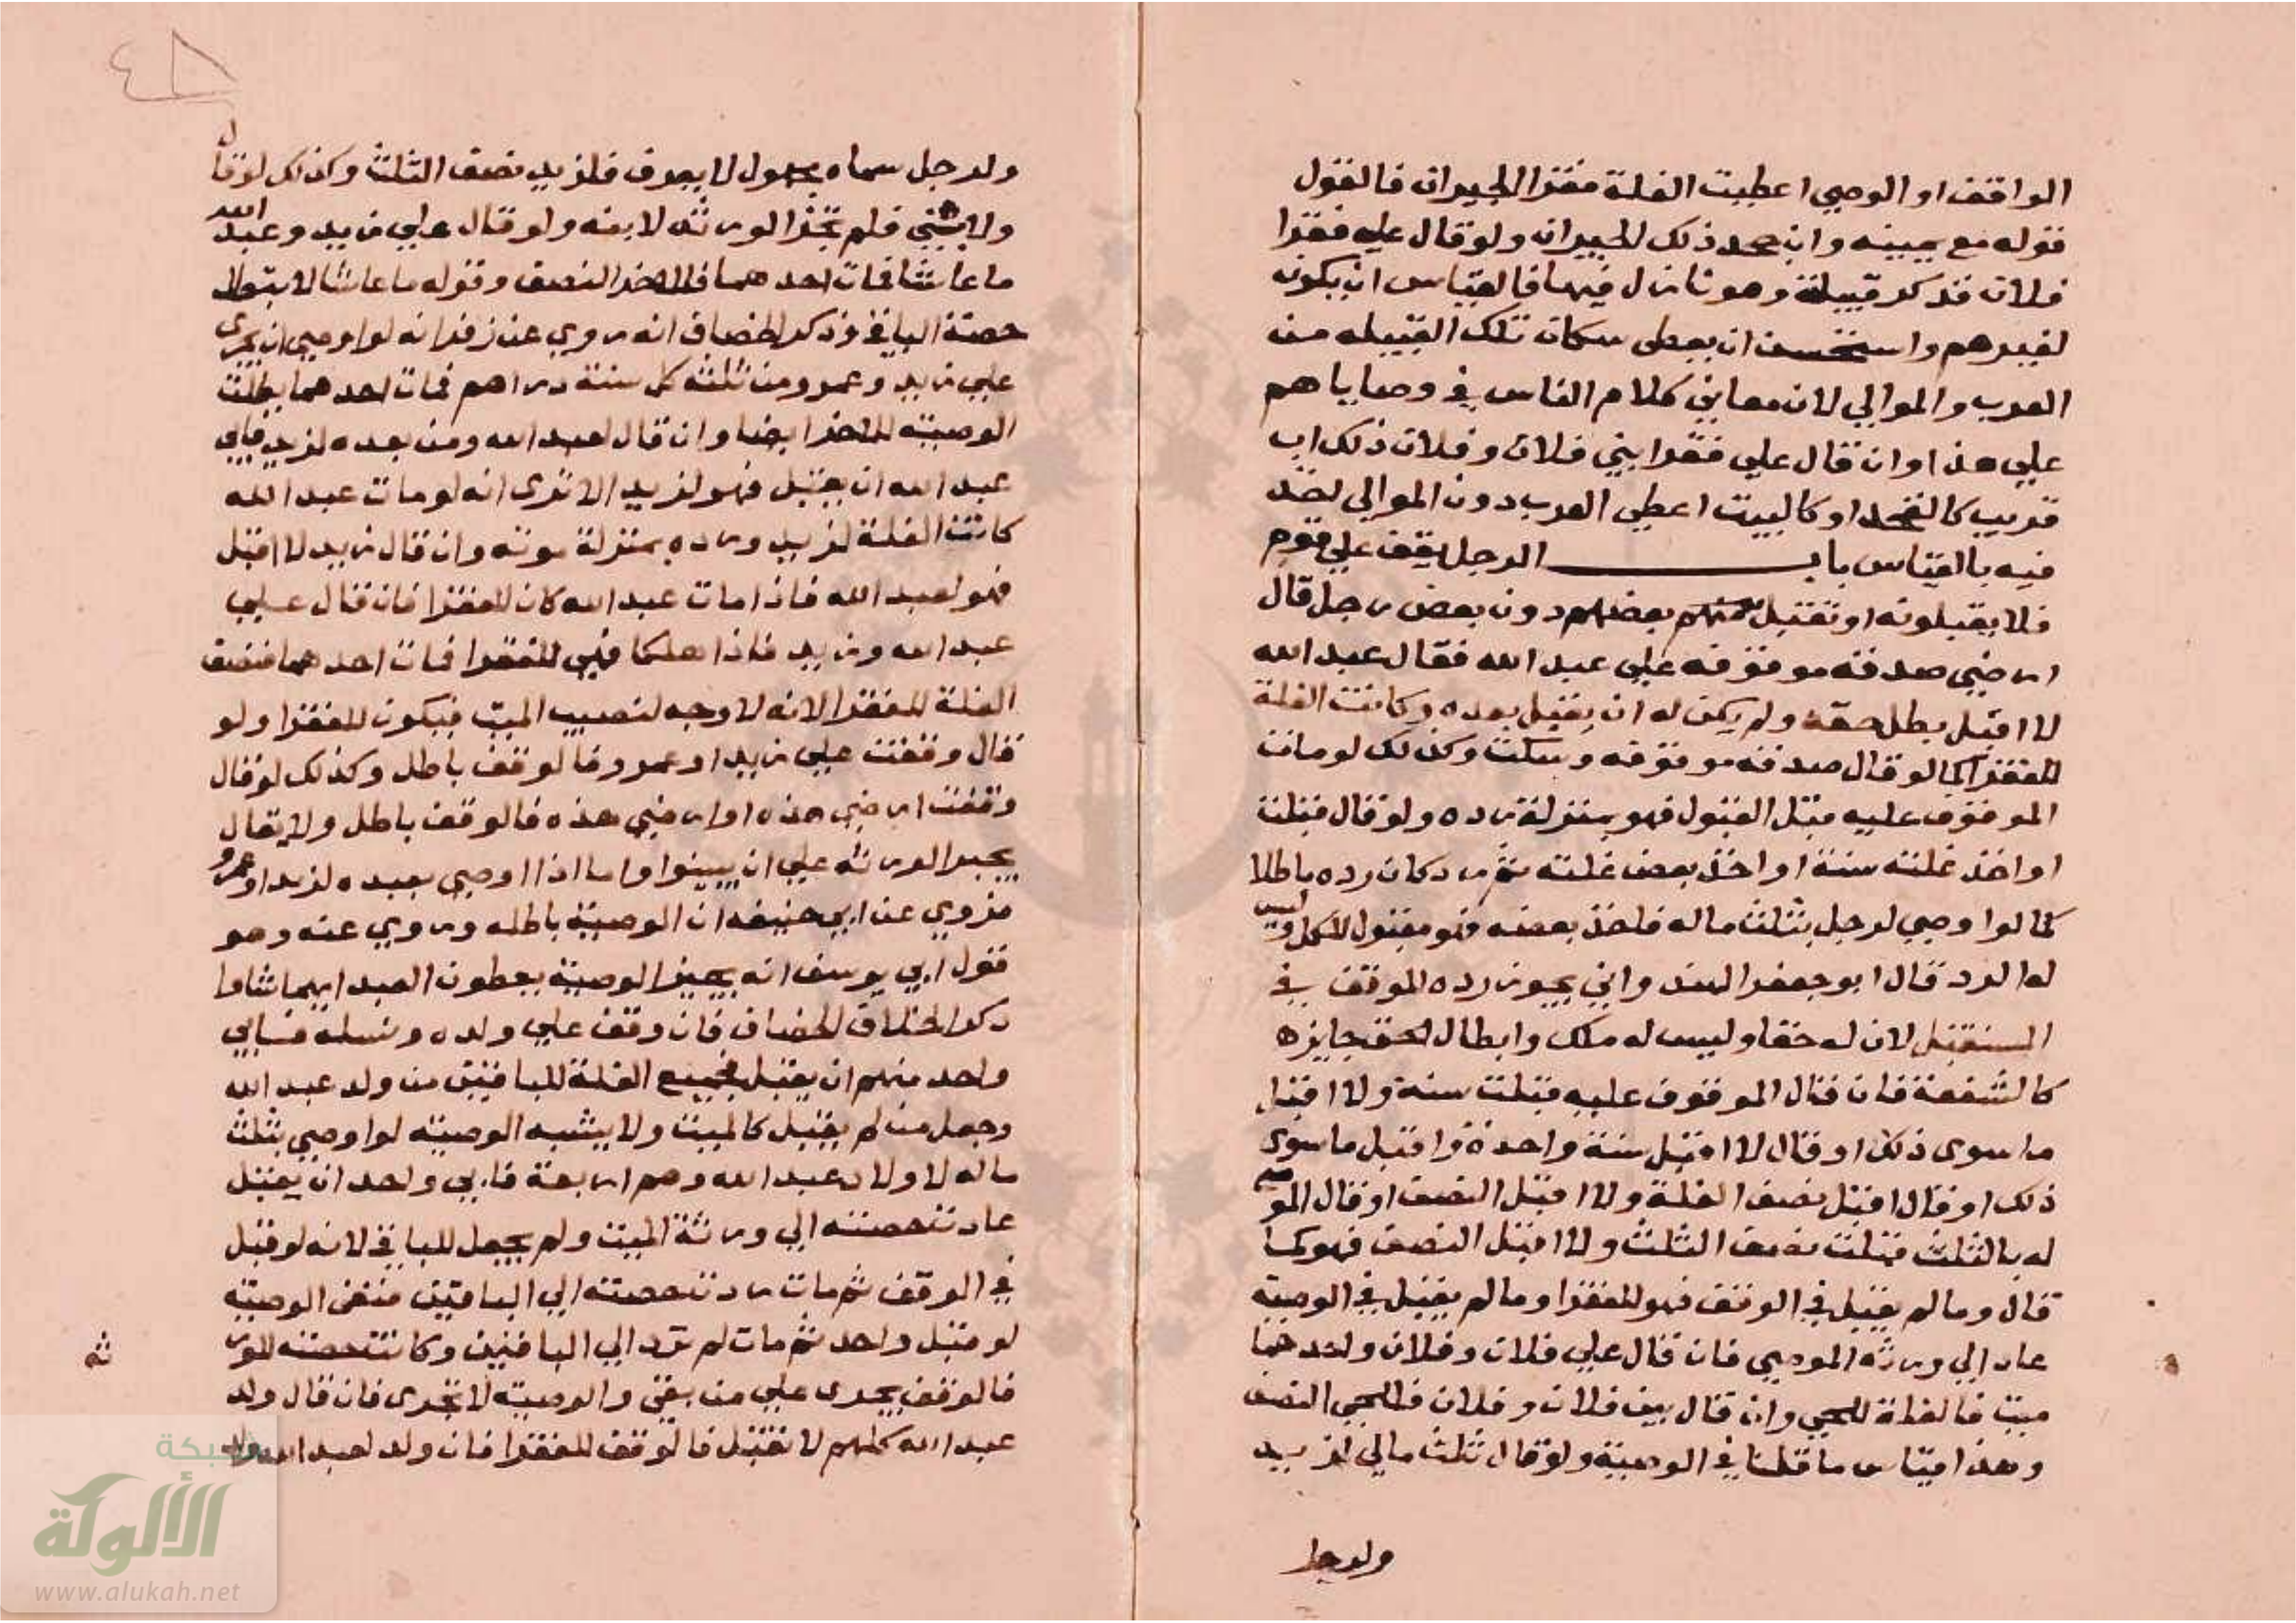 الواقف او الوصي اعطيت الغلة فقرا الجيران فالقول
قوله مع يمينه وان جحد ذلك الجيران ولو قال علي فقرا
فلان فذكر قبيلة وهو نازل فيها فالقياس ان يكون
لغيرهم واستحسن ان يعطى سكان تلك القبيله من
العرب والموالي لان معاني كلام الناس في وصاياهم
علي هذا وان قال علي فقرا بني فلان وفلان ذلك اب
قريب كالفخذ او كالبيت اعطي العرب دون الموالي
فيه بالقياس باب الرجل يقف علي قوم
فلا يقبلونه او تقبل منهم بعضهم دون بعض رجل قال
ارضي صدقه موقوفه علي عبد الله فقال عبد الله
لا اقبل بطل حقه ولم يكن له ان يقبل بعده وكانت الغلة
للفقرا كما لو قال صدقه موقوفه وسكت وكذلك لو مات
الموقوف عليه قبل القبول فهو بمنزلة رده ولو قال قبلت
او اخذ غلته سنة او اخذ بعض غلته ثم رد كان رده باطلا
كما لو اوصي لرجل بثلث ماله فاخذ بعضه فهو مقبول للكل وليس
له الرد قال ابو جعفر الهند واني يجوز رده الموقف في
المستقبل لان له حقا وليس له ملك وابطال الحق جايزه
كالشفعة فان قال الموقوف عليه قبلت سنة ولا اقبل
ما سوى ذلك او قال لا اقبل سنة واحدة واقبل ما سوى
ذلك او قال اقبل نصف الغلة ولا اقبل النصف او قال الموصي
له بالثلث قبلت نصف الثلث ولا اقبل النصف فهو كما
قال وما لم يقبل في الوقف فهو للفقرا وما لم يقبل في الوصية
عاد الي ورثه الموصي فان قال علي فلان وفلان واحدهما
ميت فالغلة للحي وان قال بين فلان وفلان فللحي النصف
وهذا قياس ما قلنا في الوصية ولو قال ثلث مالي لزيد
ولرجل
٤٨
ولرجل سماه مجهول لا يعرف فلزيد نصف الثلث وكذلك لو قال
ولابني فلم تجز الورثه لابنه ولو قال علي زيد وعبد الله
ما عاشا فمات احدهما فللاخر النصف وقوله ما عاشا لا يبطل
حصة الباقي وذكر الخصاف انه روي عن زفر انه لو اوصي ان يجرى
علي زيد وعمرو من ثلثه كل سنة دراهم فمات احدهما بطلت
الوصية للاخر ايضا وان قال لعبد الله ومن بعده لزيد فابي
عبد الله ان يقبل فهو لزيد الا ترى انه لو مات عبد الله
كانت الغلة لزيد ورده بمنزلة موته وان قال زيد لا اقبل
فهو لعبد الله فاذا مات عبد الله كان للفقرا فان قال علي
عبد الله وزيد فاذا هلكا فهي للفقرا فمات احدهما فنصف
الغلة للفقرا لانه لا وجه لنصيب الميت فيكون للفقرا ولو
قال وقفت علي زيد او عمرو فالوقف باطل وكذلك لو قال
وقفت ارضي هذه او ارضي هذه فالوقف باطل ولا يقال
يجبر الورثه علي ان يبينوا واما اذا اوصي بعبده لزيد او عمرو
فروي عن ابي حنيفه ان الوصية باطله وروي عنه وهو
قول ابي يوسف انه يجيز الوصية يعطون العبد ايهما شاوا
ذكر الخلاف الخصاف فان وقف علي ولده ونسله فابي
واحد منهم ان يقبل فجميع الغلة للباقين من ولد عبد الله
وجعل من لم يقبل كالميت ولا يشبه الوصيه لو اوصي بثلث
ماله لاولاد عبد الله وهم اربعة فابي واحد ان يقبل
عادت حصته الي ورثة الميت ولم يجعل للباقي لانه لو قبل
في الوقف ثم مات ردت حصته الي الباقين ففي الوصيه
لو قبل واحد ثم مات لم ترد الي الباقين وكانت حصته للور
ثه
فالوقف يجرى علي من بقي والوصيه لا تجرى فان قال ولد
عبد الله كلهم لا نقبل فالوقف للفقرا فان ولد لعبد الله ولد
شبكة
الألوكة
www.alukah.net